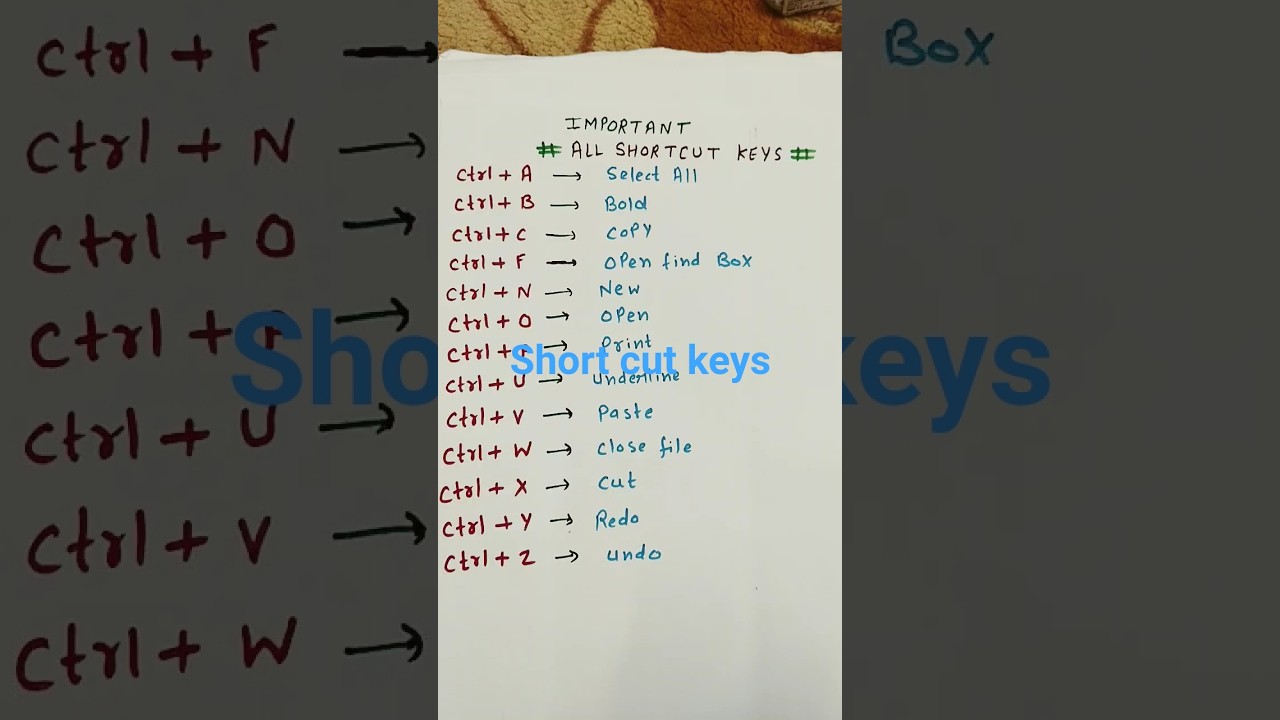 IMPORTANT
# ALL SHORTCUT KEYS #
Ctrl + A → Select All
Ctrl + B → Bold
Ctrl + C → Copy
Ctrl + F → Open find Box
Ctrl + N → New
Ctrl + O → Open
Ctrl + → Print
Short cut keys
Ctrl + U → Underline
Ctrl + V → Paste
Ctrl + W → Close file
Ctrl + X → Cut
Ctrl + Y → Redo
Ctrl + Z → Undo
Ctrl + F →
Ctrl + N →
Ctrl + O →
Ctrl + →
Ctrl + U →
Ctrl + V →
Ctrl + W →
Box
keys